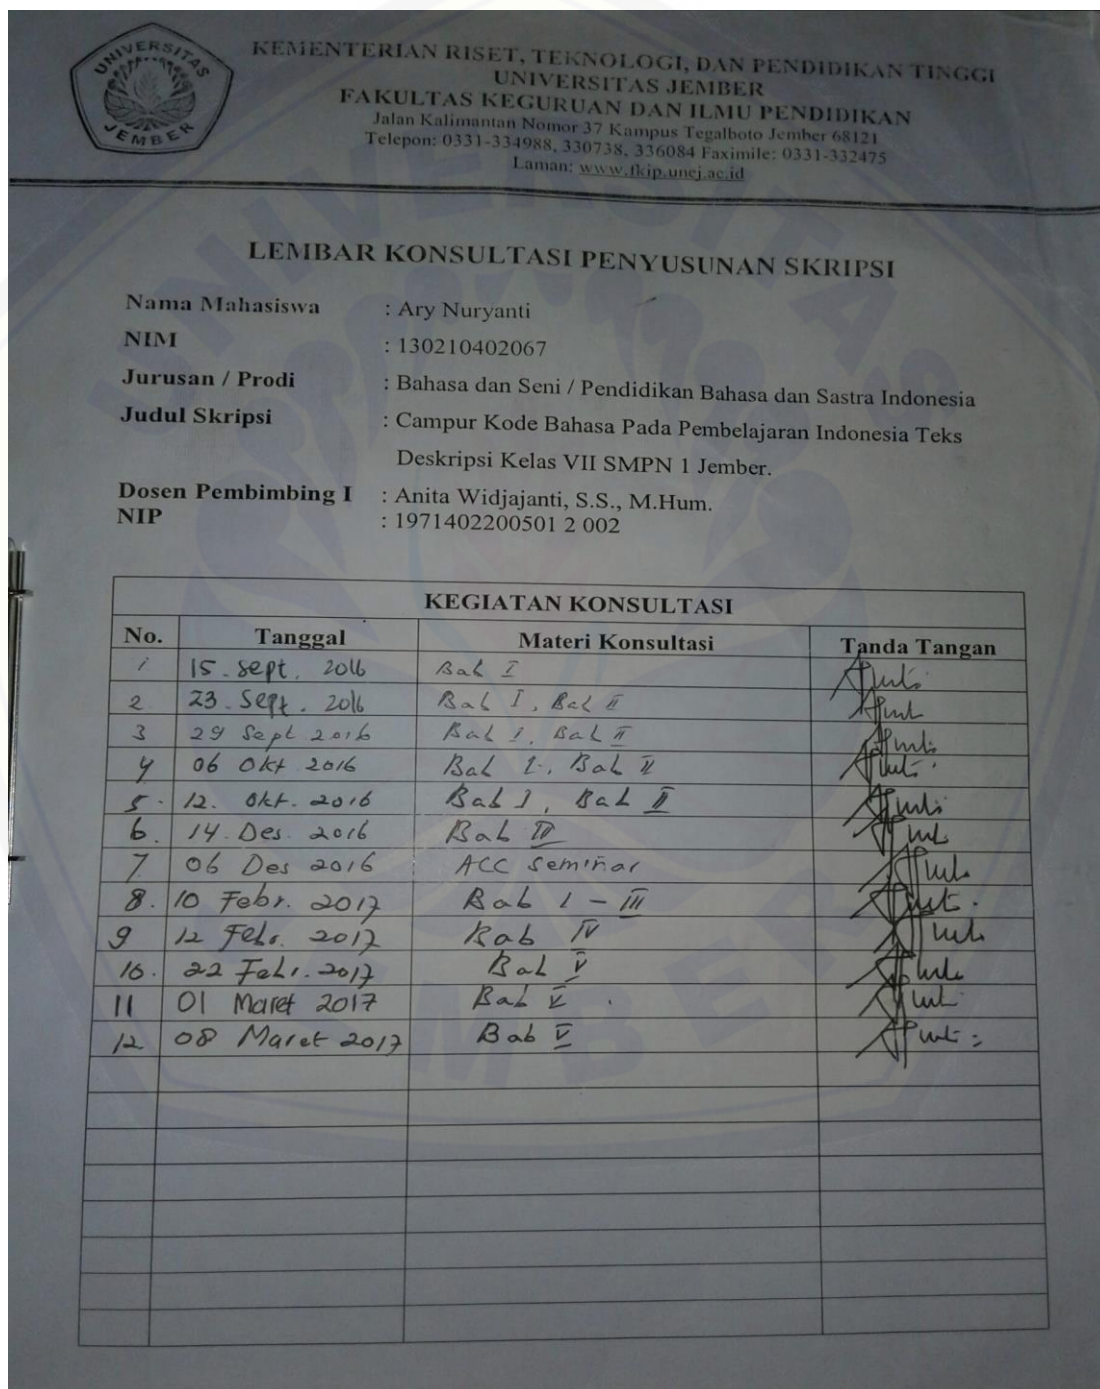 UNIVERSITAS
JEMBER
KEMENTERIAN RISET, TEKNOLOGI, DAN PENDIDIKAN TINGGI
UNIVERSITAS JEMBER
FAKULTAS KEGURUAN DAN ILMU PENDIDIKAN
Jalan Kalimantan Nomor 37 Kampus Tegalboto Jember 68121
Telepon: 0331-334988, 330738, 336084 Faximile: 0331-332475
Laman: www.fkip.unej.ac.id
LEMBAR KONSULTASI PENYUSUNAN SKRIPSI
Nama Mahasiswa : Ary Nuryanti
NIM : 130210402067
Jurusan / Prodi : Bahasa dan Seni / Pendidikan Bahasa dan Sastra Indonesia
Judul Skripsi : Campur Kode Bahasa Pada Pembelajaran Indonesia Teks
Deskripsi Kelas VII SMPN 1 Jember.
Dosen Pembimbing I : Anita Widjajanti, S.S., M.Hum.
NIP : 1971402200501 2 002
KEGIATAN KONSULTASI
No. Tanggal Materi Konsultasi Tanda Tangan
1 15. Sept. 2016 Bab I
2 23. Sept. 2016 Bab I, Bab II
3 29 Sept 2016 Bab I, Bab II
4 06 Okt 2016 Bab I, Bab II
5. 12. Okt. 2016 Bab I, Bab II
6. 14. Des. 2016 Bab
7 06 Des 2016 ACC Seminar
8. 10 Febr. 2017 Bab I - III
9 12 Febr. 2017 Bab IV
10. 22 Febr. 2017 Bab V
11 01 Maret 2017 Bab V.
12 08 Maret 2017 Bab V